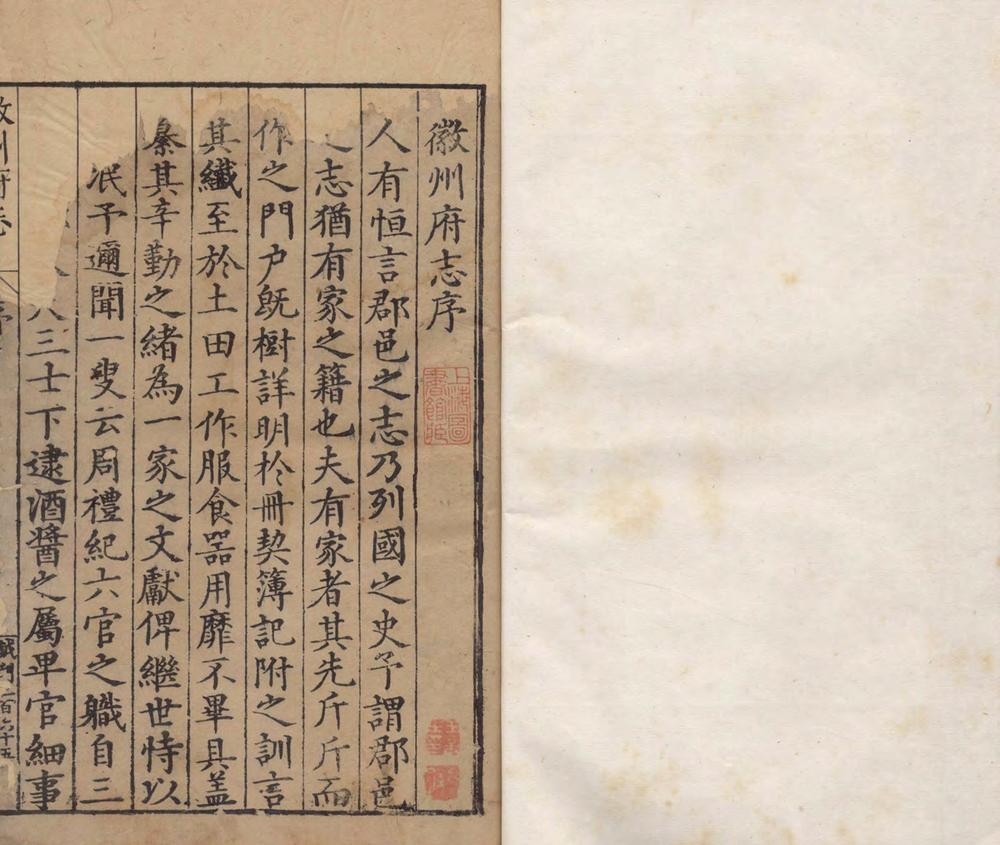 徽州府志序
上海圖書館藏
人有恒言郡邑之志乃列國之史予謂郡邑
志猶有家之籍也夫有家者其先斤斤而
作之門户既樹詳明於冊契簿記附之訓言
其纎至於土田工作服食器用靡不畢具盖
纍其辛勤之緒為一家之文獻俾繼世恃以
泯予邇聞一叟云周禮紀六官之職自三
八三士下逮酒醬之屬卑官細事
州府志